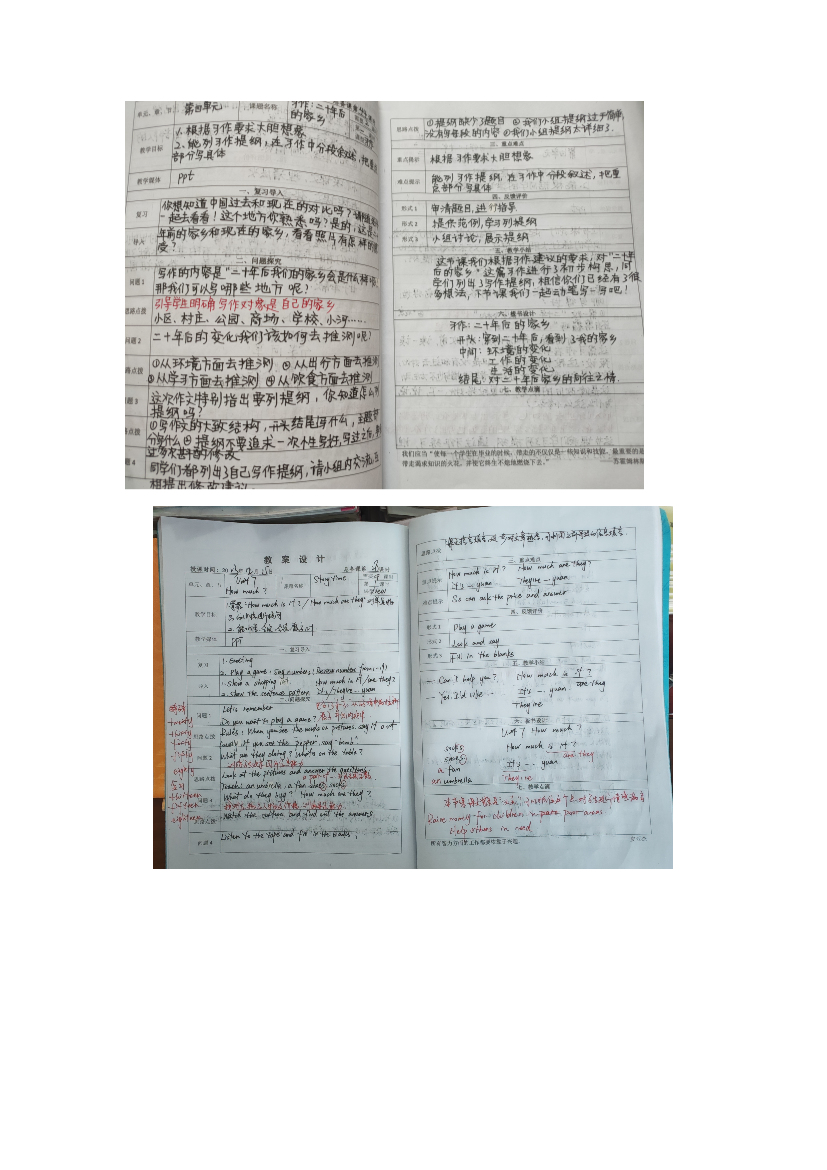 单元、章、节 第四单元 课题名称 习作:二十年后
的家乡
教学目标
1、根据习作要求大胆想象
2、能列习作提纲,在习作中分段叙述,把重点
部分写具体
教学媒体 ppt
一、复习导入
复习
导入
你想知道中国过去和现在的对比吗?
一起去看看!这个地方你熟悉吗?是的,这是二十
年前的家乡和现在的家乡,看看照片有怎样的感
受?
二、问题探究
问题1
写作的内容是“二十年后我们的家乡会是什么样呢,
那我们可以写哪些地方呢?
思路点拨
引导学生明确写作对象是自己的家乡
小区、村庄、公园、商场、学校、小河……
问题2 二十年后的变化我们该如何去推测呢?
①从环境方面去推测 ②从出行方面去推测
③从学习方面去推测 ④从饮食方面去推测
这次作文特别指出要列提纲,你知道怎么列
提纲吗?
①写作的大致结构,开头结尾写什么,主题部
分写什么②提纲不要追求一次性写好,写过之后,要
同学们都列出了自己写作提纲,请小组内交流,互
相提出修改建议
思路点拨
①提纲缺少了题目 ②我们小组提纲过于简单,
没有写每段的内容 ③我们小组提纲太详细了.
三、重点难点
重点提示 根据习作要求大胆想象
难点提示
能列习作提纲,在习作中分段叙述,把重
点部分写具体
四、反馈评价
形式1 审清题目,进行指导
形式2 提供范例,学习列提纲
形式3 小组讨论,展示提纲
五、教学小结
这节课我们根据习作建议的要求,对“二十年
后的家乡”这篇习作进行了初步构思,同
学们列出了写作提纲,相信你们已经有了很
多想法,下节课我们一起动笔写一写吧!
六、板书设计
习作:二十年后的家乡
开头:穿到二十年后,看到了我的家乡
中间:环境的变化
工作的变化
生活的变化
结尾:对二十年后家乡的向往之情.
七、教学点滴
我们应当“使每一个学生在毕业的时候,带走的不仅仅是一些知识和技能,最重要的是
带走渴求知识的火花,并使它终生不熄地燃烧下去。”
——苏霍姆林斯
教案设计
授课时间:20
单元、章、节 Unit 7
How much?
课题名称 Story time
教学目标
教学媒体 PPT
一、复习导入
复习
1. Greeting
2. Play a game: Say numbers (Review numbers from
导入
1. Show a shopping list. How much is it/are they?
2. Show the sentence pattern It's/They're … yuan
二、问题探究
问题1
Let's remember
Do you want to play a game?
思路点拨
Rules: When you see the words or pictures, say it out
loudly. If you see the "pepper", say "bomb".
问题2
What are they doing? What's on the table?
思路点拨
Look at the pictures and answer the questions
问题3
What do they buy? How much are they?
思路点拨
Watch the cartoon and find out the answers
问题4
Listen to the tape and fill in the blanks
twenty
thirty
thirteen
fifteen
eighteen
思路点拨
三、重点难点
重点提示
How much is it? How much are they?
It's … yuan They're … yuan
难点提示 Ss can ask the price and answer
四、反馈评价
形式1 Play a game
形式2 Look and say
形式3 Fill in the blanks
五、教学小结
— Can I help you? How much is it?
— Yes. I'd like … It's … yuan
They're
六、板书设计
Unit 7 How much?
socks How much is it?
are they
socks It's … yuan
a fan
an umbrella They're
七、教学点滴
Raise money for children in poor areas
help others in need